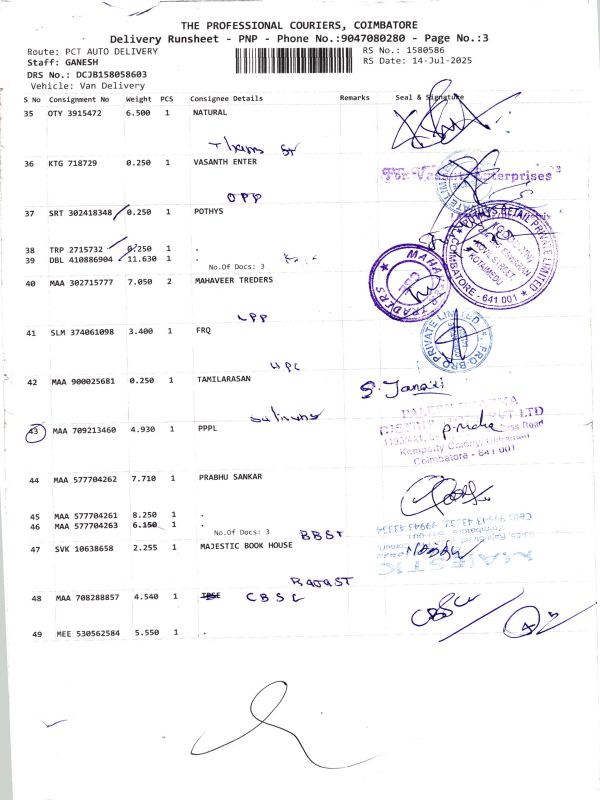 THE PROFESSIONAL COURIERS, COIMBATORE
Delivery Runsheet - PNP - Phone No.:9047080280 - Page No.:3
Route: PCT AUTO DELIVERY RS No.: 1580586
Staff: GANESH RS Date: 14-Jul-2025
DRS No.: DCJB158058603
Vehicle: Van Delivery
S No Consignment No Weight PCS Consignee Details Remarks Seal & Signature
35 OTY 3915472 6.500 1 NATURAL
36 KTG 718729 0.250 1 VASANTH ENTER
For Vasanth Enterprises
OPP
37 SRT 302418348 0.250 1 POTHYS
POTHYS RETAIL PRIVATE LIMITED
COIMBATORE - 641 001
38 TRP 2715732 0.250 1 .
39 DBL 410886904 11.630 1 .
No.Of Docs: 3
40 MAA 302715777 7.050 2 MAHAVEER TREDERS
TRADERS
LPP
41 SLM 374061098 3.400 1 FRQ
FROBRO PRIVATE LIMITED
UPC
42 MAA 900025681 0.250 1 TAMILARASAN
43 MAA 709213460 4.930 1 PPPL
Coimbatore - 641 001
44 MAA 577704262 7.710 1 PRABHU SANKAR
45 MAA 577704261 8.250 1 .
46 MAA 577704263 6.150 1 .
No.Of Docs: 3 BBST
47 SVK 10638658 2.255 1 MAJESTIC BOOK HOUSE
48 MAA 708288857 4.540 1 CBSC
49 MEE 530562584 5.550 1 .